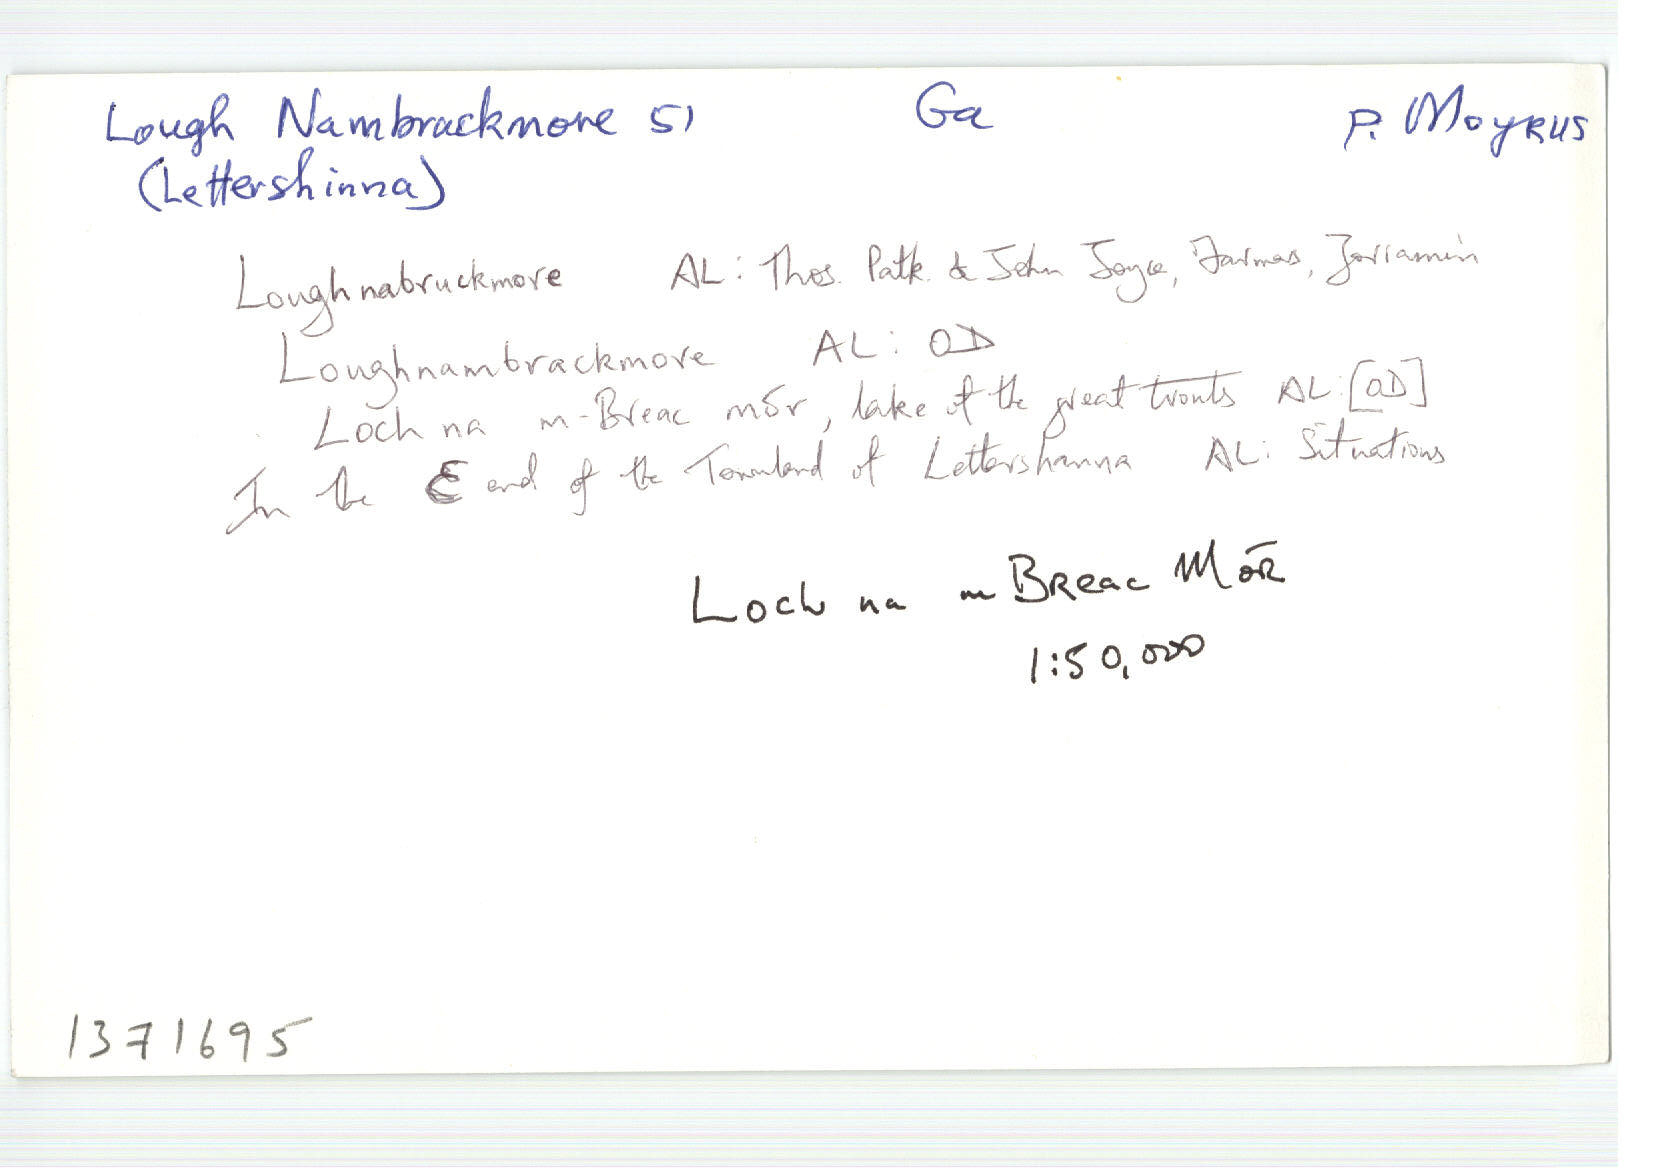 Lough Nambrackmore 51 Ga P. Moyrus
(Lettershinna)
Loughnabruckmore AL: Thos. Patk. & John Joyce, Farmers,
Loughnambrackmore AL: OD
Loch na m-Breac mór, lake of the great trouts AL: [OD]
In the E end of the Townland of Lettershanna AL: Situations
Loch na mBreac Mór
1:50,000
1371695